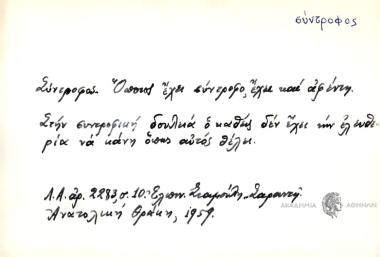 σύντροφος
Σύντροφος. Ὅποιος ἔχει σύντροφο, ἔχει καί ἀφέντη.
Στήν συντροφική δουλειά ὁ καθείς δέν ἔχει τήν ἐλευθε-
ρία νά κάνῃ ὅπως αὐτός θέλει.
Λ.Α. ἀρ. 2283, σ. 10. Ἐλπιν. Σταμούλη-Σαραντῆ
Ἀνατολική Θράκη, 1959.
ΑΚΑΔΗΜΙΑ ΑΘΗΝΩΝ